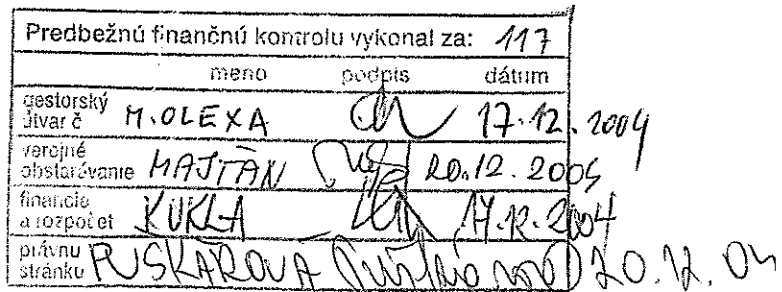 Predbežnú finančnú kontrolu vykonal za: 117
meno podpis dátum
gestorský útvar č M. OLEXA 17.12.2004
verejné obstarávanie MAJTÁN 20.12.2004
financie a rozpočet KUKLA 17.12.2004
právnu stránku PUSKÁROVÁ 20.12.04